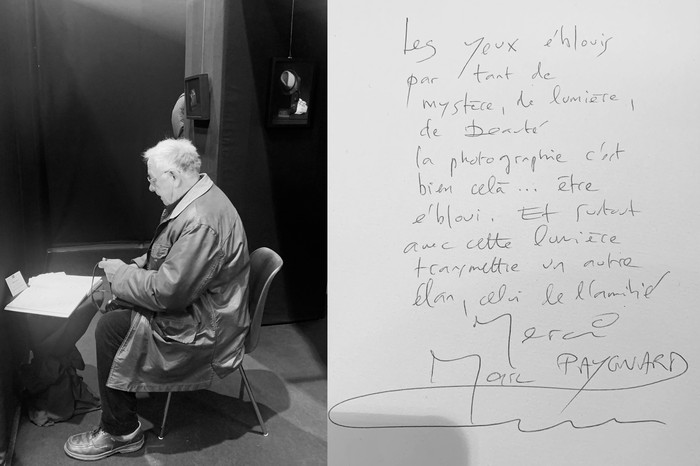 Les yeux éblouis
par tant de
mystère, de lumière,
de beauté
la photographie c'est
bien celà... être
ébloui. Et surtout
avec cette lumière
transmettre un autre
élan, celui de l'amitié
Merci
Marc PAYGNARD